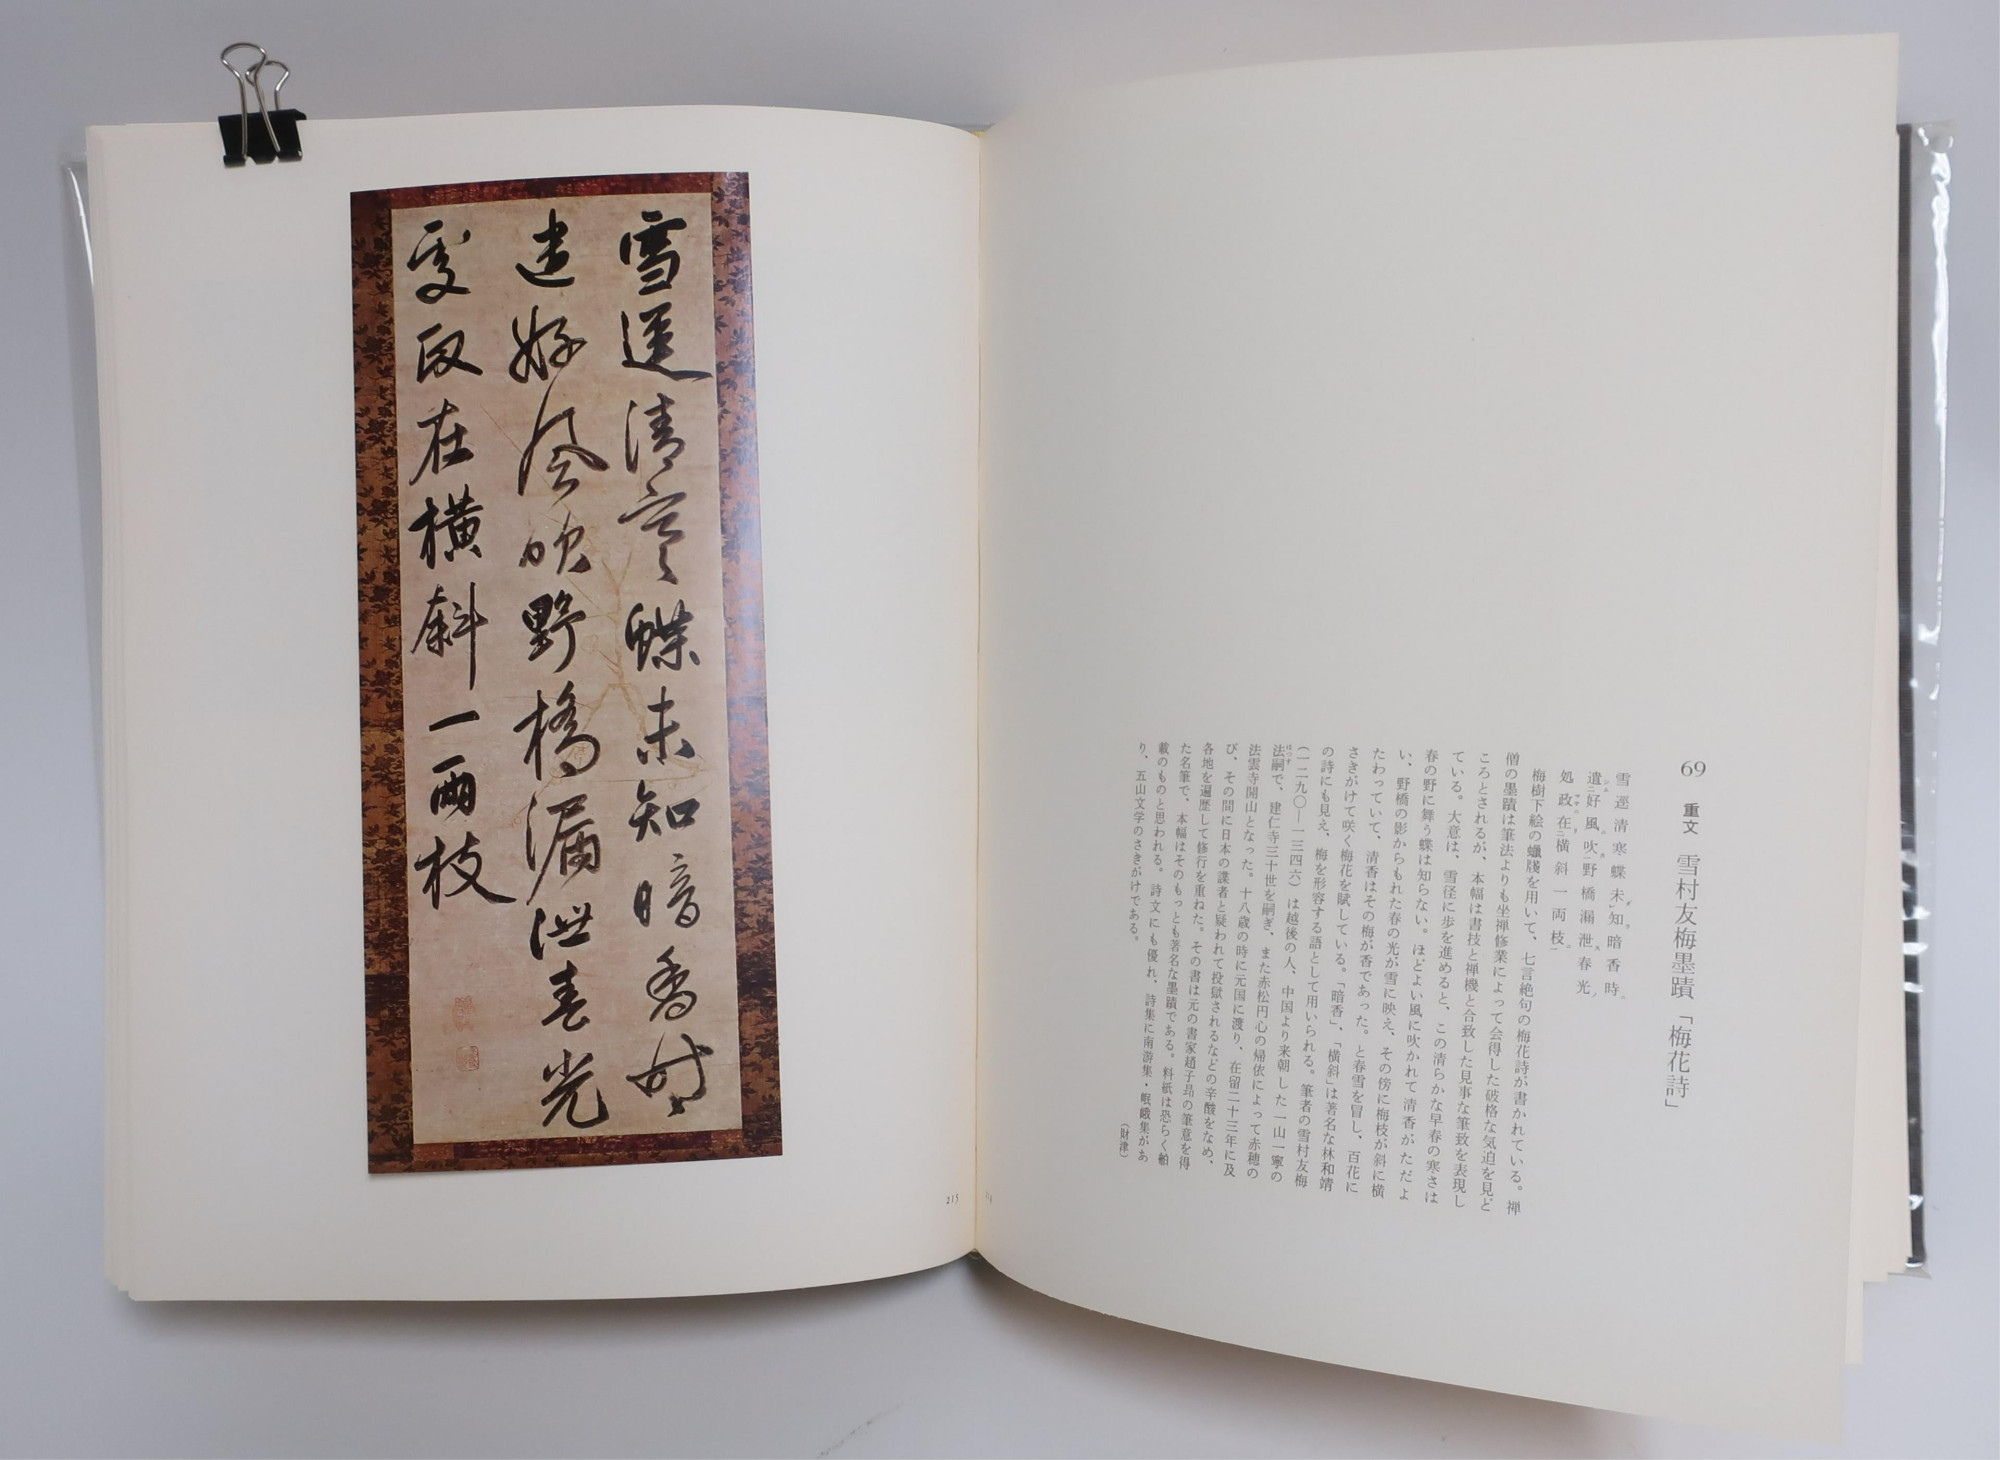 69 重文 雪村友梅墨蹟「梅花詩」
雪逕清寒蝶未レ知暗香時
遣三好風吹二野橋漏泄春光
処政在二横斜一両枝一
梅樹下絵の蠟牋を用いて、七言絶句の梅花詩が書かれている。禅
僧の墨蹟は筆法よりも坐禅修業によって会得した破格な気迫を見ど
ころとされるが、本幅は書技と禅機と合致した見事な筆致を表現し
ている。大意は、雪径に歩を進めると、この清らかな早春の寒さは
春の野に舞う蝶は知らない。ほどよい風に吹かれて清香がただよ
い、野橋の影からもれた春の光が雪に映え、その傍に梅枝が斜に横
たわっていて、清香はその梅が香であった。と春雪を冒し、百花に
さきがけて咲く梅花を賦している。「暗香」、「横斜」は著名な林和靖
の詩にも見え、梅を形容する語として用いられる。筆者の雪村友梅
(一二九〇―一三四六)は越後の人、中国より来朝した一山一寧の
法嗣で、建仁寺三十世を嗣ぎ、また赤松円心の帰依によって赤穂の
法雲寺開山となった。十八歳の時に元国に渡り、在留二十三年に及
び、その間に日本の諜者と疑われて投獄されるなどの辛酸をなめ、
各地を遍歴して修行を重ねた。その書は元の書家趙子昻の筆意を得
た名筆で、本幅はそのもっとも著名な墨蹟である。料紙は恐らく舶
載のものと思われる。詩文にも優れ、詩集に南游集・岷峨集があ
り、五山文学のさきがけである。
(財津)
雪逕清寒蝶未知暗香时
遣好風吹野橋漏泄春光
処政在横斜一両枝
215